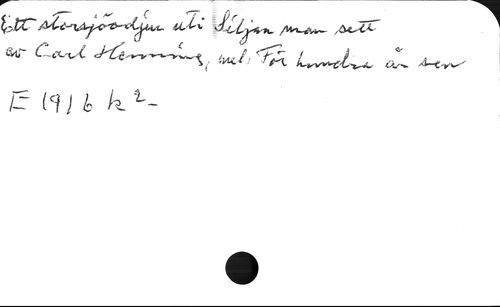 Ett storsjöodjur uti Siljan man sett
av Carl Henning, mel: För hundra år sen
E 1916 k 2-